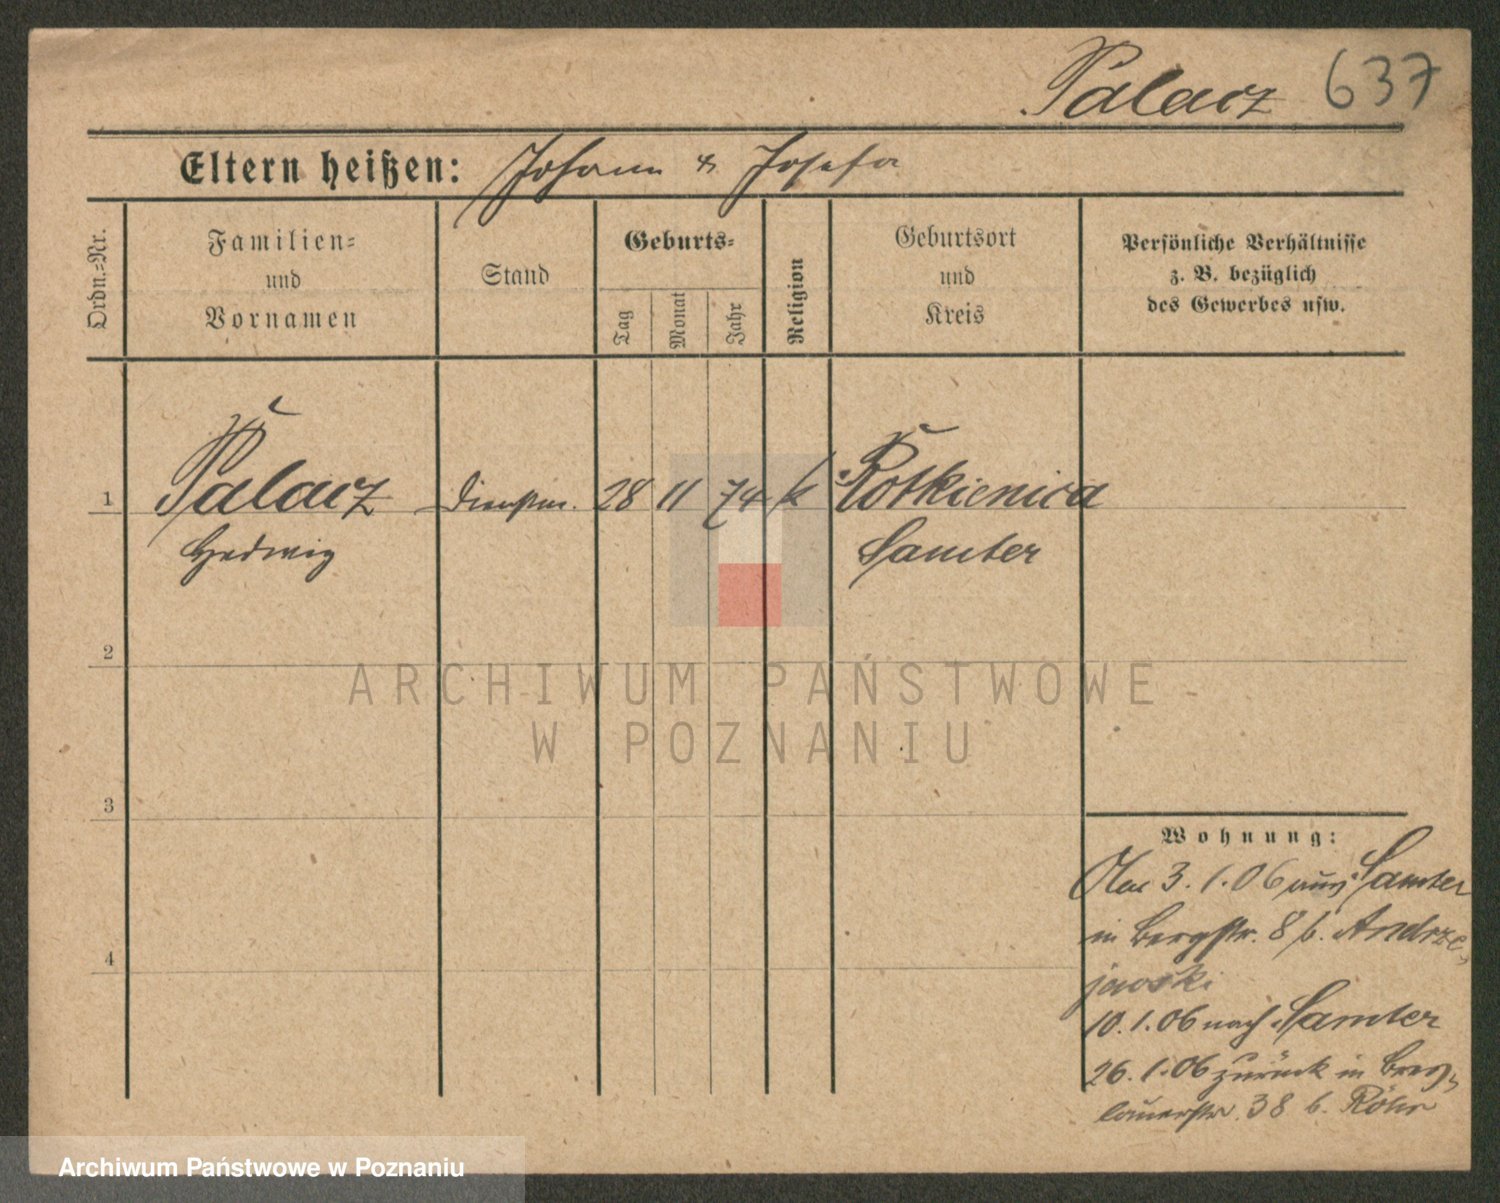 Palacz 637
Eltern heißen: Johann & Josefa
Ordn.=Nr.
Familien=
und
Vornamen
Stand
Geburts=
Tag
Monat
Jahr
Religion
Geburtsort
und
Kreis
Persönliche Verhältnisse
z. B. bezüglich
des Gewerbes usw.
1 Palacz Dienstm. 28 11 74 k Rotkienica
Hedwig Samter
2
3
4
ARCHIWUM PAŃSTWOWE
W POZNANIU
Wohnung:
3.1.06 aus Samter
in Bergstr. 8 b. Andrze-
jewski
10.1.06 nach Samter
26.1.06 zurück in Bres-
lauerstr. 38 b. Röhr
Archiwum Państwowe w Poznaniu